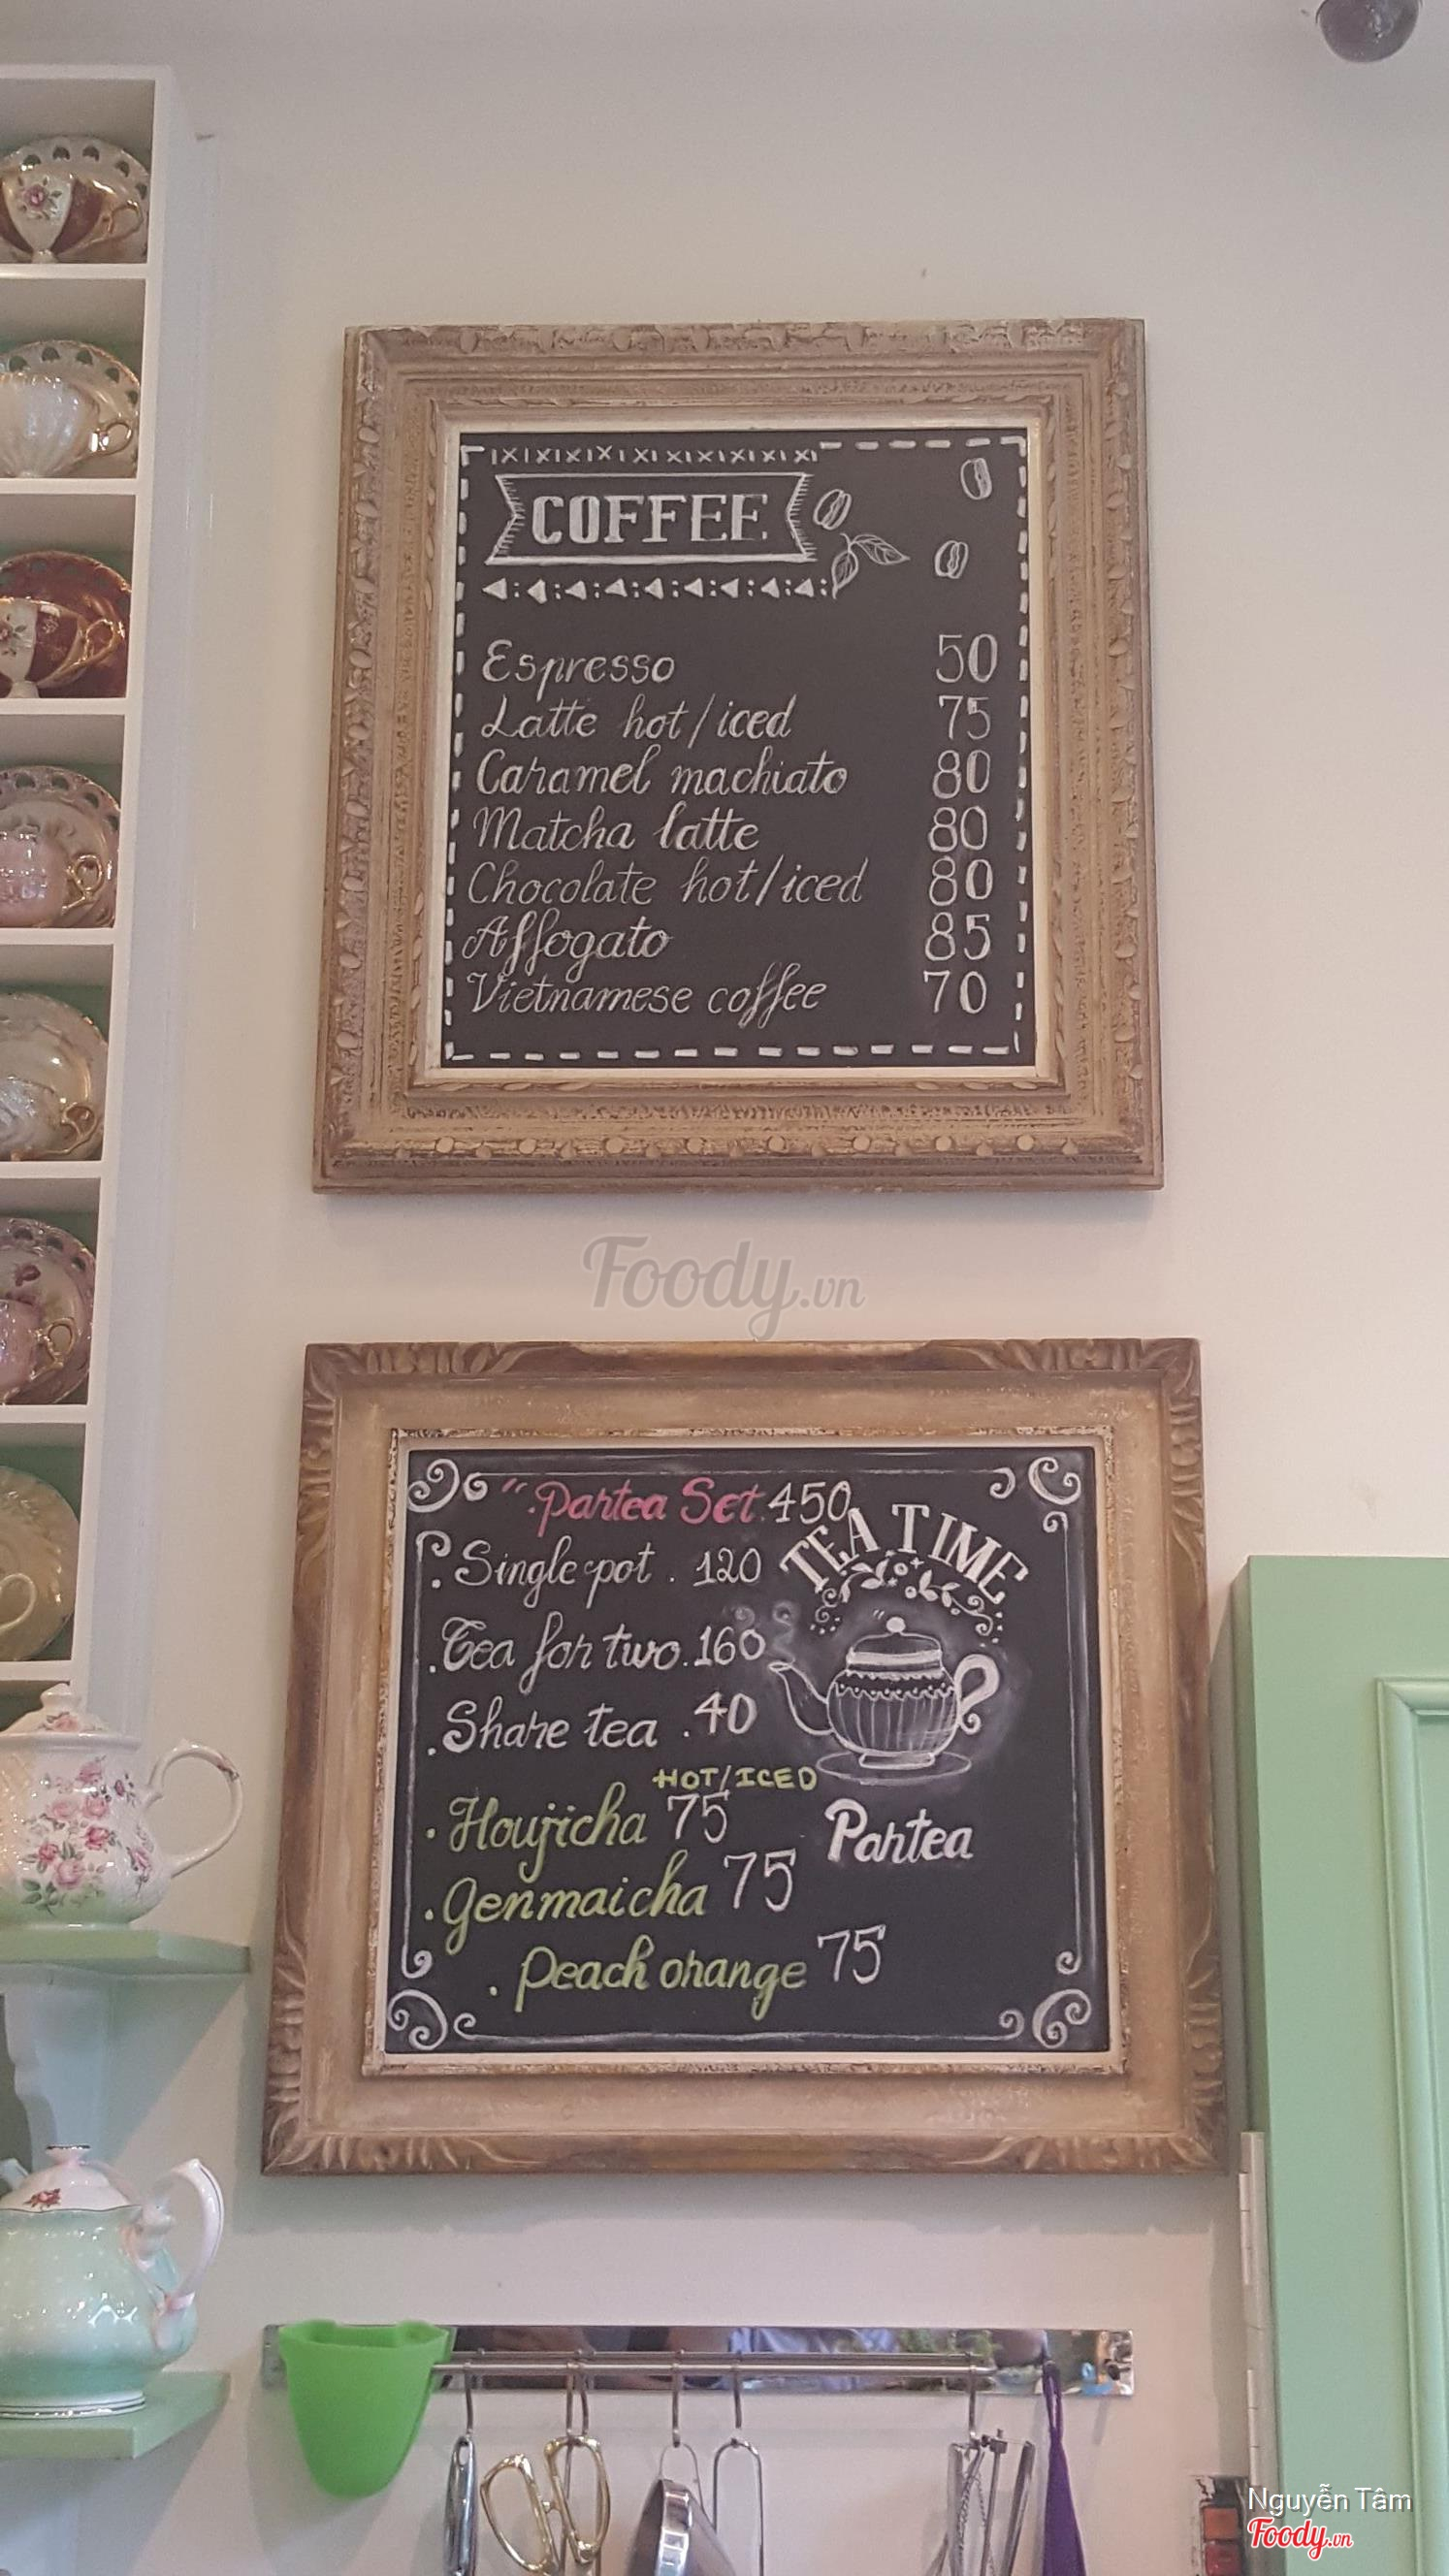 COFFEE
Espresso 50
Latte hot/iced 75
Caramel machiato 80
Matcha latte 80
Chocolate hot/iced 80
Affogato 85
Vietnamese coffee 70
Foody.vn
". Partea Set. 450
TEA TIME
. Single pot . 120
. Tea for two. 160
. Share tea . 40
HOT/ICED
. Houjicha 75
Partea
. Genmaicha 75
. Peach orange 75
Nguyễn Tâm
Foody.vn